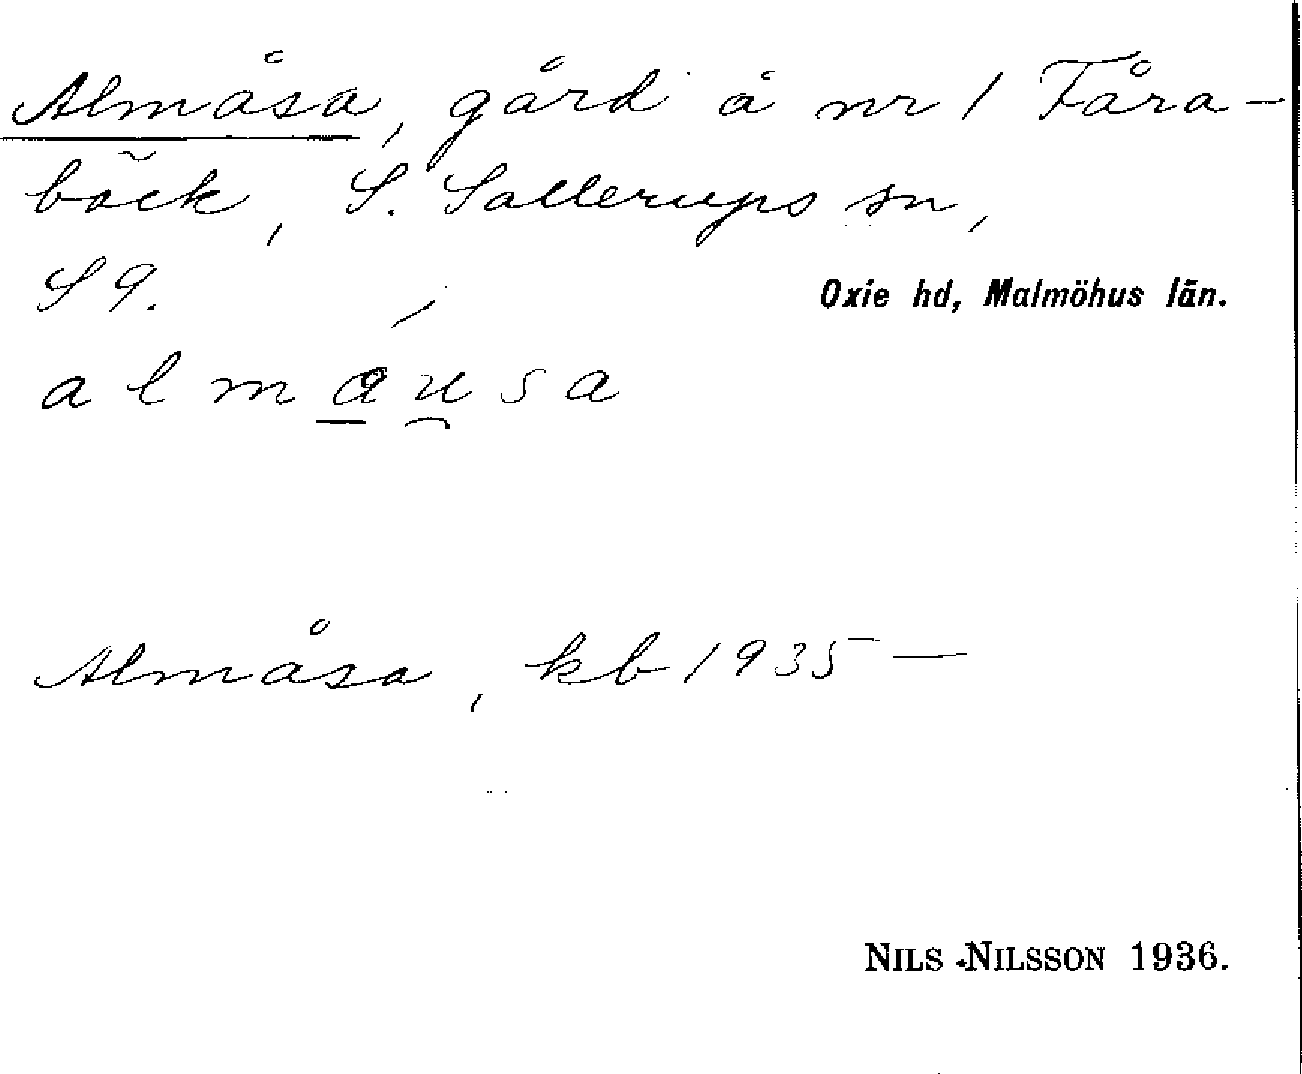 Almåsa, gård å nr 1 Fåra-
bäck, S. Sallerups sn,
S 9.
Oxie hd, Malmöhus län.
a l m a u̯ s a
Almåsa, kb 1935 —
NILS NILSSON 1936.